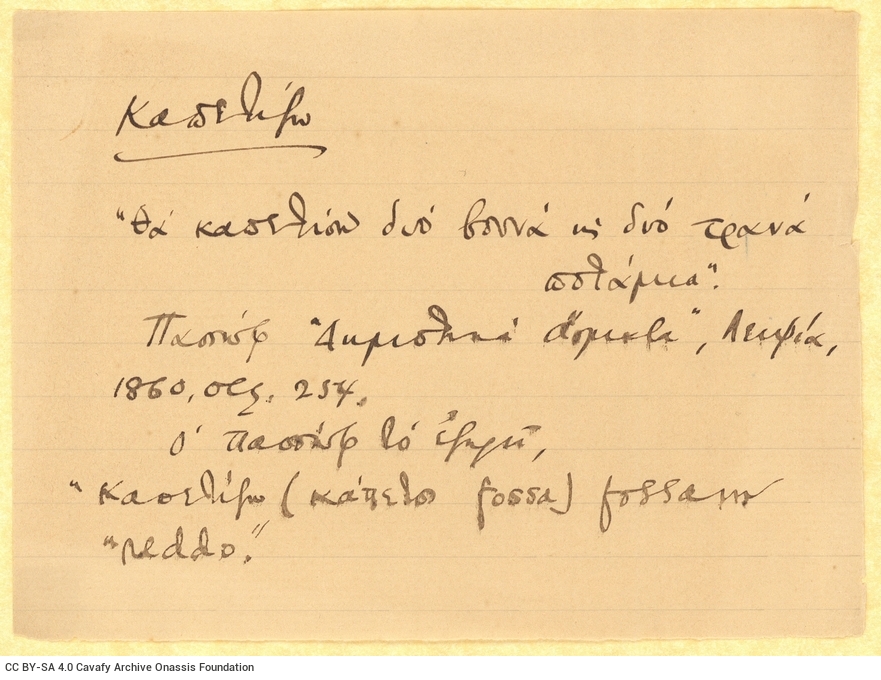 Καπετίζω
"Θά καπετίσω δυό βουνά κι δυό τρανά
ποτάμια".
Πασσώφ "Δημοτικά ᾄσματα", Λειψία,
1860, σελ. 254.
Ο' Πασσώφ τό ἐξηγεῖ,
"Καπετίζω (κάπετος fossa) fossam
"reddo".
CC BY-SA 4.0 Cavafy Archive Onassis Foundation